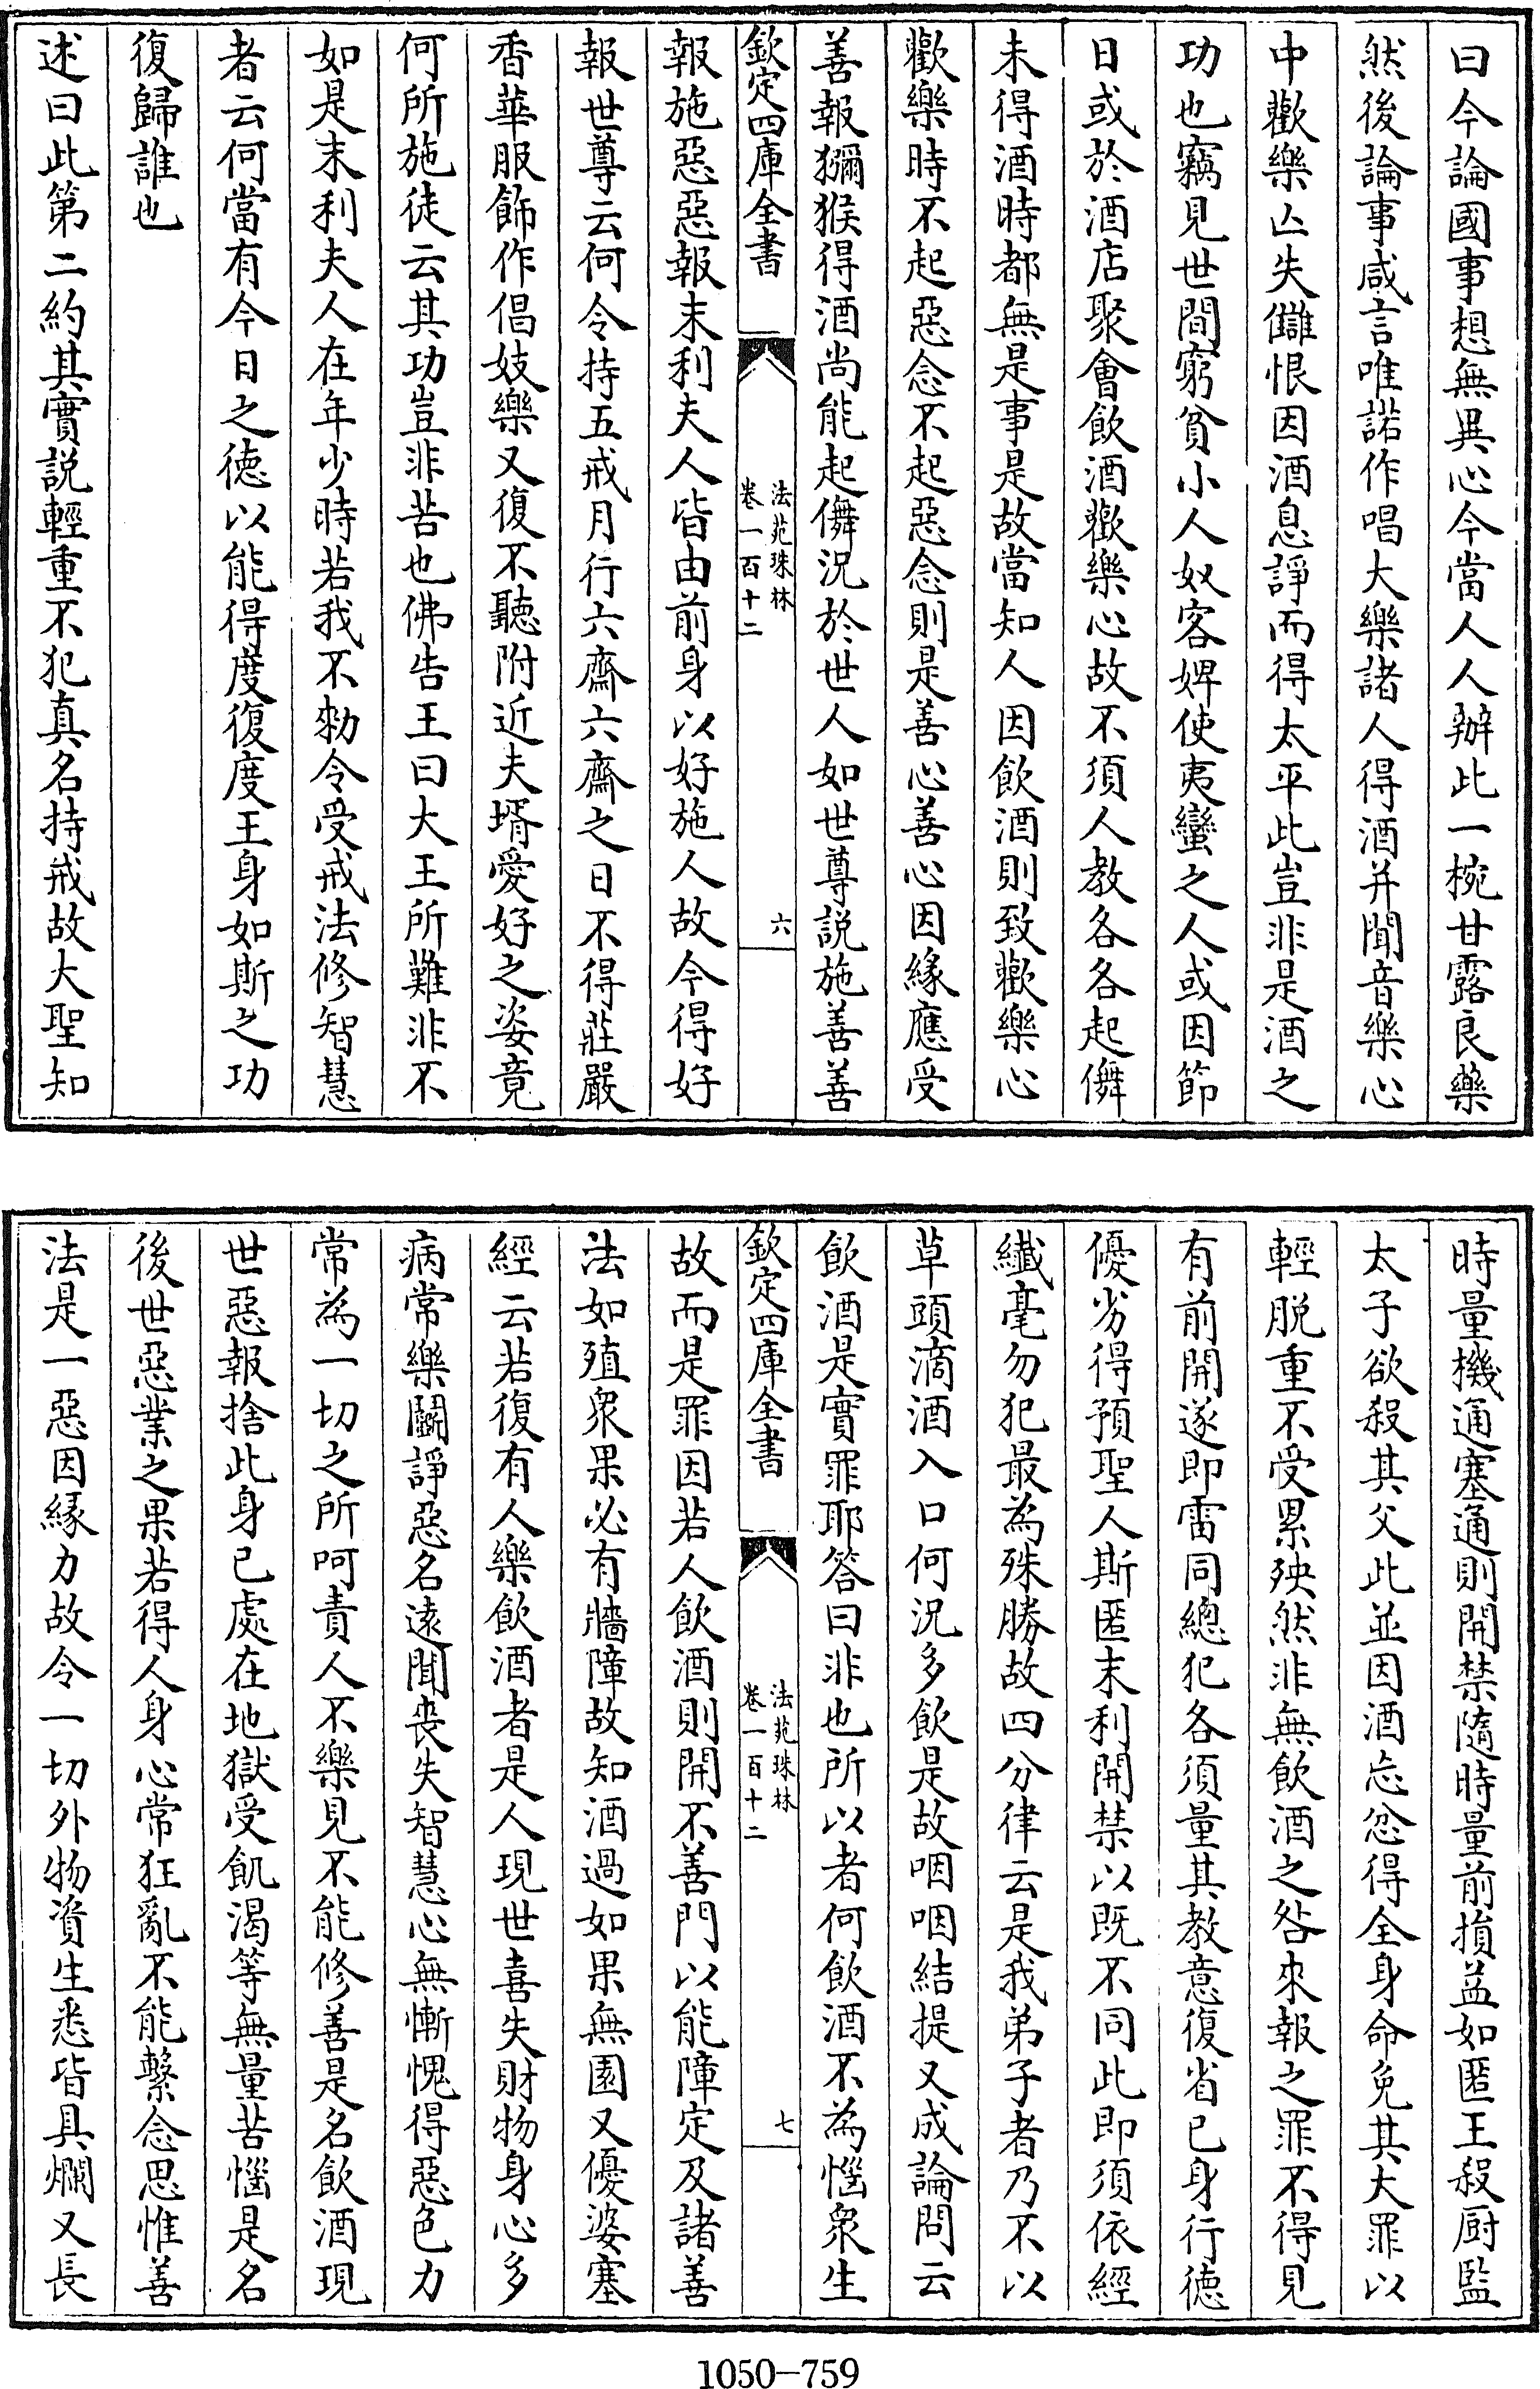 曰今論國事想無異心今當人人辦此一椀甘露良藥
然後論事咸言唯諾作唱大樂諸人得酒并聞音樂心
中歡樂亾失讎恨因酒息諍而得太平此豈非是酒之
功也竊見世間窮貧小人奴客婢使夷蠻之人或因節
日或於酒店聚會飲酒歡樂心故不須人教各各起儛
未得酒時都無是事是故當知人因飲酒則致歡樂心
歡樂時不起惡念不起惡念則是善心善心因緣應受
善報獼猴得酒尚能起儛況於世人如世尊說施善善
欽定四庫全書
法苑珠林
卷一百十二
六
報施惡惡報末利夫人皆由前身以好施人故今得好
報世尊云何令持五戒月行六齋六齋之日不得莊嚴
香華服飾作倡妓樂又復不聽附近夫壻愛好之姿竟
何所施徒云其功豈非苦也佛告王曰大王所難非不
如是末利夫人在年少時若我不勅令受戒法修智慧
者云何當有今日之徳以能得度復度王身如斯之功
復歸誰也
述曰此第二約其實説輕重不犯真名持戒故大聖知
時量機通塞通則開禁隨時量前損益如匿王殺厨監
太子欲殺其父此並因酒忘忿得全身命免其大罪以
輕脱重不受累殃然非無飲酒之咎來報之罪不得見
有前開遂即雷同總犯各須量其教意復省已身行徳
優劣得預聖人斯匿末利開禁以既不同此即須依經
纖毫勿犯最為殊勝故四分律云是我弟子者乃不以
草頭滴酒入口何況多飲是故咽咽結提又成論問云
飲酒是實罪耶答曰非也所以者何飲酒不為惱衆生
欽定四庫全書
法苑珠林
卷一百十二
七
故而是罪因若人飲酒則開不善門以能障定及諸善
法如殖衆果必有牆障故知酒過如果無園又優婆塞
經云若復有人樂飲酒者是人現世喜失財物身心多
病常樂鬭諍惡名遠聞喪失智慧心無慚愧得惡色力
常為一切之所呵責人不樂見不能修善是名飲酒現
世惡報捨此身已處在地獄受飢渴等無量苦惱是名
後世惡業之果若得人身心常狂亂不能繫念思惟善
法是一惡因緣力故令一切外物資生悉皆具爛又長
1050-759